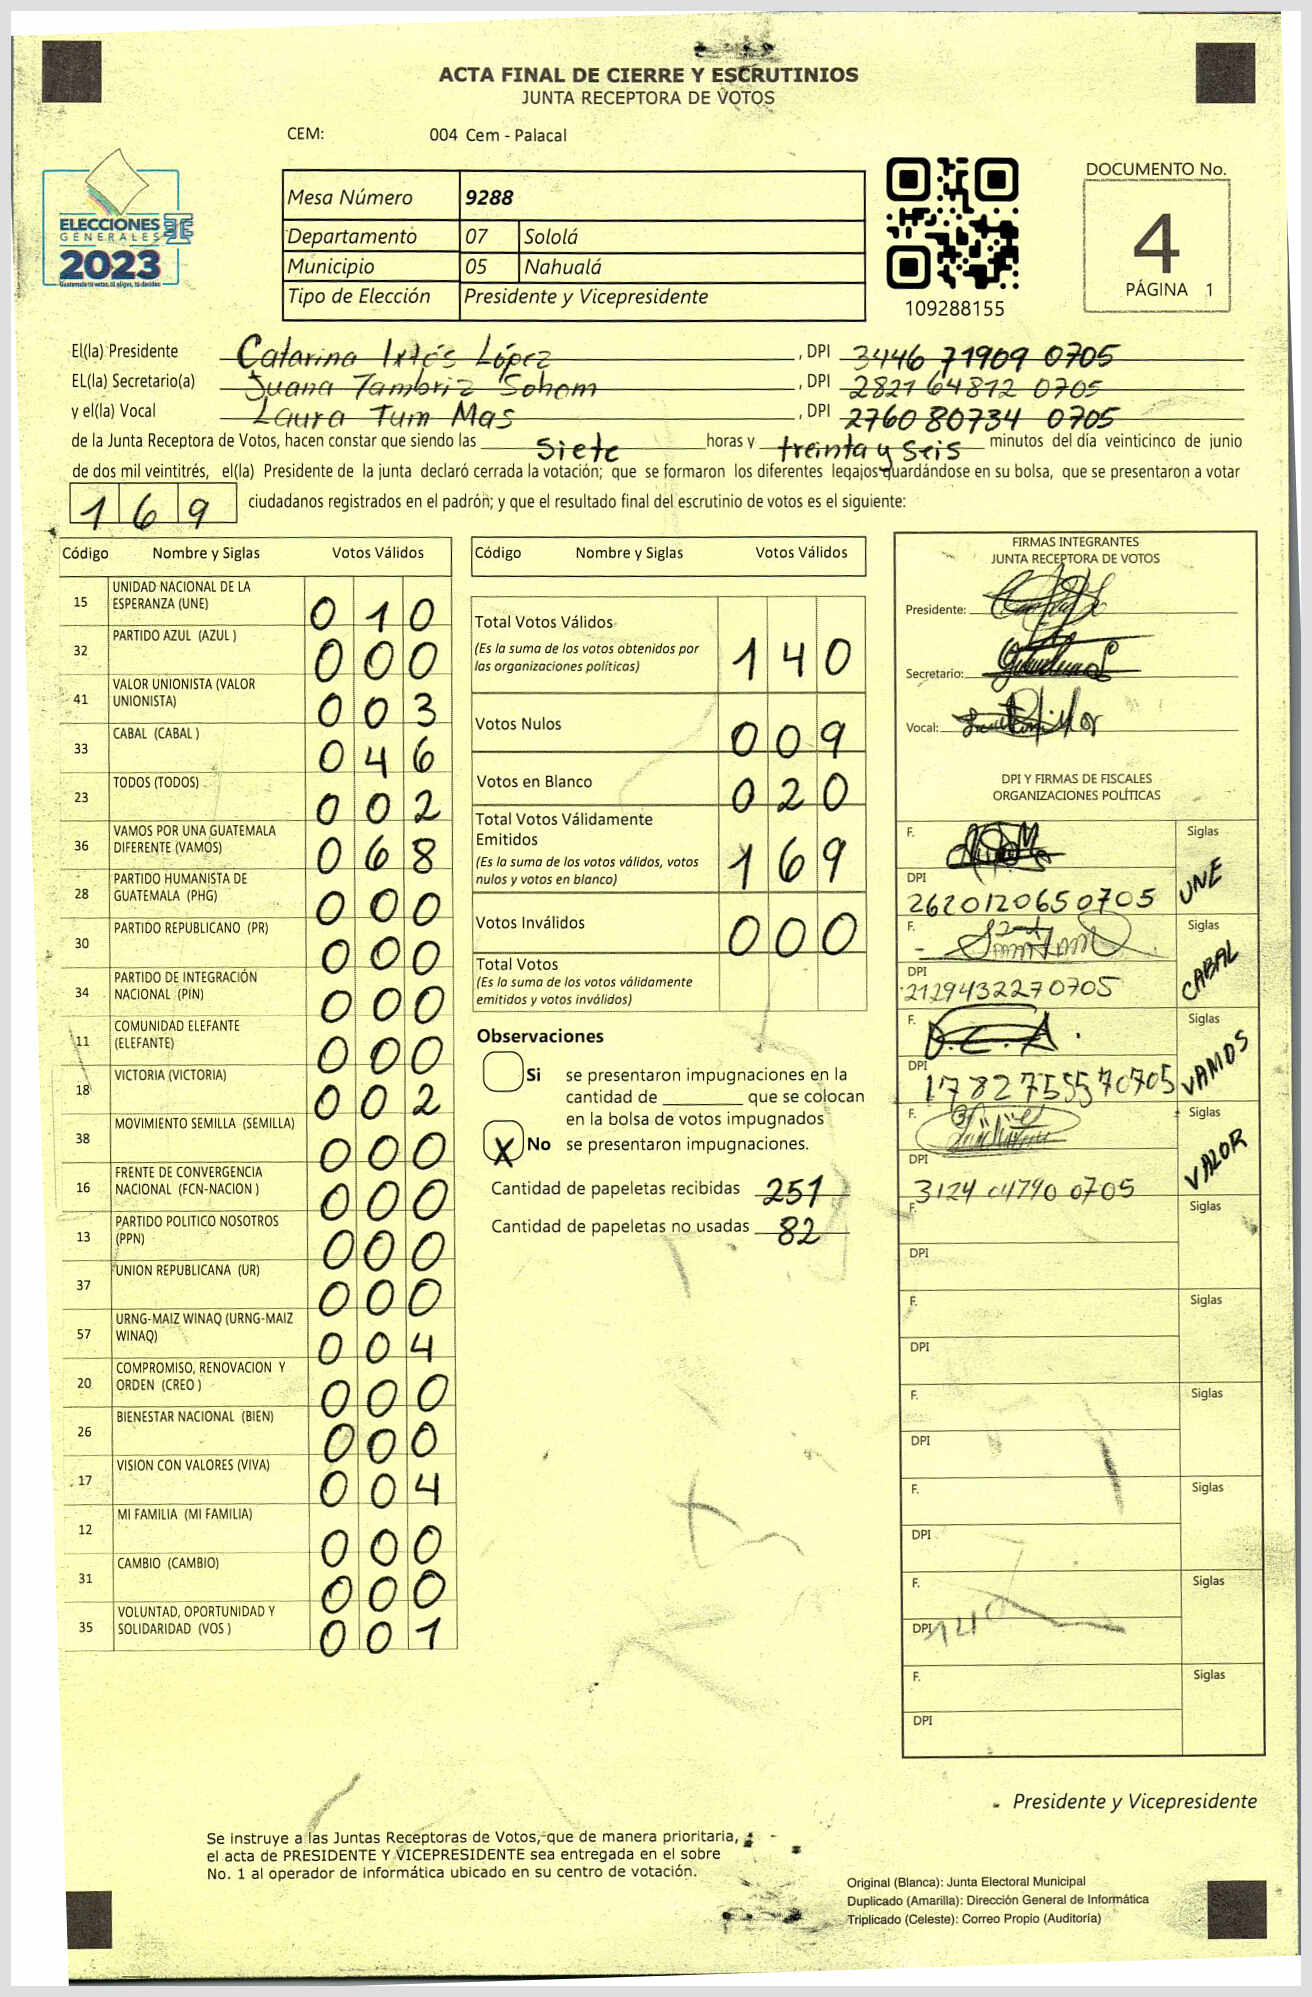 ACTA FINAL DE CIERRE Y ESCRUTINIOS
JUNTA RECEPTORA DE VOTOS
CEM: 004 Cem - Palacal
ELECCIONES
GENERALES
2023
Guatemala tú votas, tú eliges, tú decides
Mesa Número 9288
Departamento 07 Sololá
Municipio 05 Nahualá
Tipo de Elección Presidente y Vicepresidente
109288155
DOCUMENTO No.
4
PÁGINA 1
El(la) Presidente Catarina Ixtós López , DPI 3446 71909 0705
EL(la) Secretario(a) Juana Tambriz Sohom , DPI 2821 64812 0705
y el(la) Vocal Laura Tum Mas , DPI 2760 80734 0705
de la Junta Receptora de Votos, hacen constar que siendo las siete horas y treinta y seis minutos del día veinticinco de junio
de dos mil veintitrés, el(la) Presidente de la junta declaró cerrada la votación; que se formaron los diferentes legajos guardándose en su bolsa, que se presentaron a votar
169 ciudadanos registrados en el padrón; y que el resultado final del escrutinio de votos es el siguiente:
Código Nombre y Siglas Votos Válidos
15 UNIDAD NACIONAL DE LA ESPERANZA (UNE) 010
32 PARTIDO AZUL (AZUL ) 000
41 VALOR UNIONISTA (VALOR UNIONISTA) 003
33 CABAL (CABAL ) 046
23 TODOS (TODOS) 002
36 VAMOS POR UNA GUATEMALA DIFERENTE (VAMOS) 068
28 PARTIDO HUMANISTA DE GUATEMALA (PHG) 000
30 PARTIDO REPUBLICANO (PR) 000
34 PARTIDO DE INTEGRACIÓN NACIONAL (PIN) 000
11 COMUNIDAD ELEFANTE (ELEFANTE) 000
18 VICTORIA (VICTORIA) 002
38 MOVIMIENTO SEMILLA (SEMILLA) 000
16 FRENTE DE CONVERGENCIA NACIONAL (FCN-NACION ) 000
13 PARTIDO POLITICO NOSOTROS (PPN) 000
37 UNION REPUBLICANA (UR) 000
57 URNG-MAIZ WINAQ (URNG-MAIZ WINAQ) 004
20 COMPROMISO, RENOVACION Y ORDEN (CREO ) 000
26 BIENESTAR NACIONAL (BIEN) 000
17 VISION CON VALORES (VIVA) 004
12 MI FAMILIA (MI FAMILIA) 000
31 CAMBIO (CAMBIO) 000
35 VOLUNTAD, OPORTUNIDAD Y SOLIDARIDAD (VOS ) 001
Código Nombre y Siglas Votos Válidos
Total Votos Válidos 140
(Es la suma de los votos obtenidos por
las organizaciones políticas)
Votos Nulos 009
Votos en Blanco 020
Total Votos Válidamente
Emitidos 169
(Es la suma de los votos válidos, votos
nulos y votos en blanco)
Votos Inválidos 000
Total Votos
(Es la suma de los votos válidamente
emitidos y votos inválidos)
Observaciones
Si se presentaron impugnaciones en la
cantidad de ________ que se colocan
en la bolsa de votos impugnados
X No se presentaron impugnaciones.
Cantidad de papeletas recibidas 251
Cantidad de papeletas no usadas 82
FIRMAS INTEGRANTES
JUNTA RECEPTORA DE VOTOS
Presidente:
Secretario:
Vocal:
DPI Y FIRMAS DE FISCALES
ORGANIZACIONES POLÍTICAS
F. Siglas UNE
DPI 2620120650705
F. Siglas CABAL
DPI 2129432270705
F. Siglas VAMOS
DPI 1782755570705
F. Siglas VALOR
DPI 3124 04790 0705
F. Siglas
DPI
F. Siglas
DPI
F. Siglas
DPI
F. Siglas
DPI
F. Siglas
DPI 140
F. Siglas
DPI
Presidente y Vicepresidente
Se instruye a las Juntas Receptoras de Votos, que de manera prioritaria,
el acta de PRESIDENTE Y VICEPRESIDENTE sea entregada en el sobre
No. 1 al operador de informática ubicado en su centro de votación.
Original (Blanca): Junta Electoral Municipal
Duplicado (Amarilla): Dirección General de Informática
Triplicado (Celeste): Correo Propio (Auditoría)